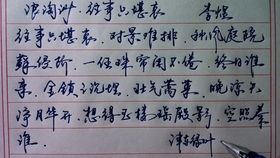 浪淘沙·往事只堪哀 李煜
往事只堪哀,对景难排。秋风庭院
藓侵阶。一任珠帘闲不卷,终日谁
来。金锁已沉埋,壮气蒿莱。晚凉天
净月华开。想得玉楼瑶殿影,空照秦
淮。